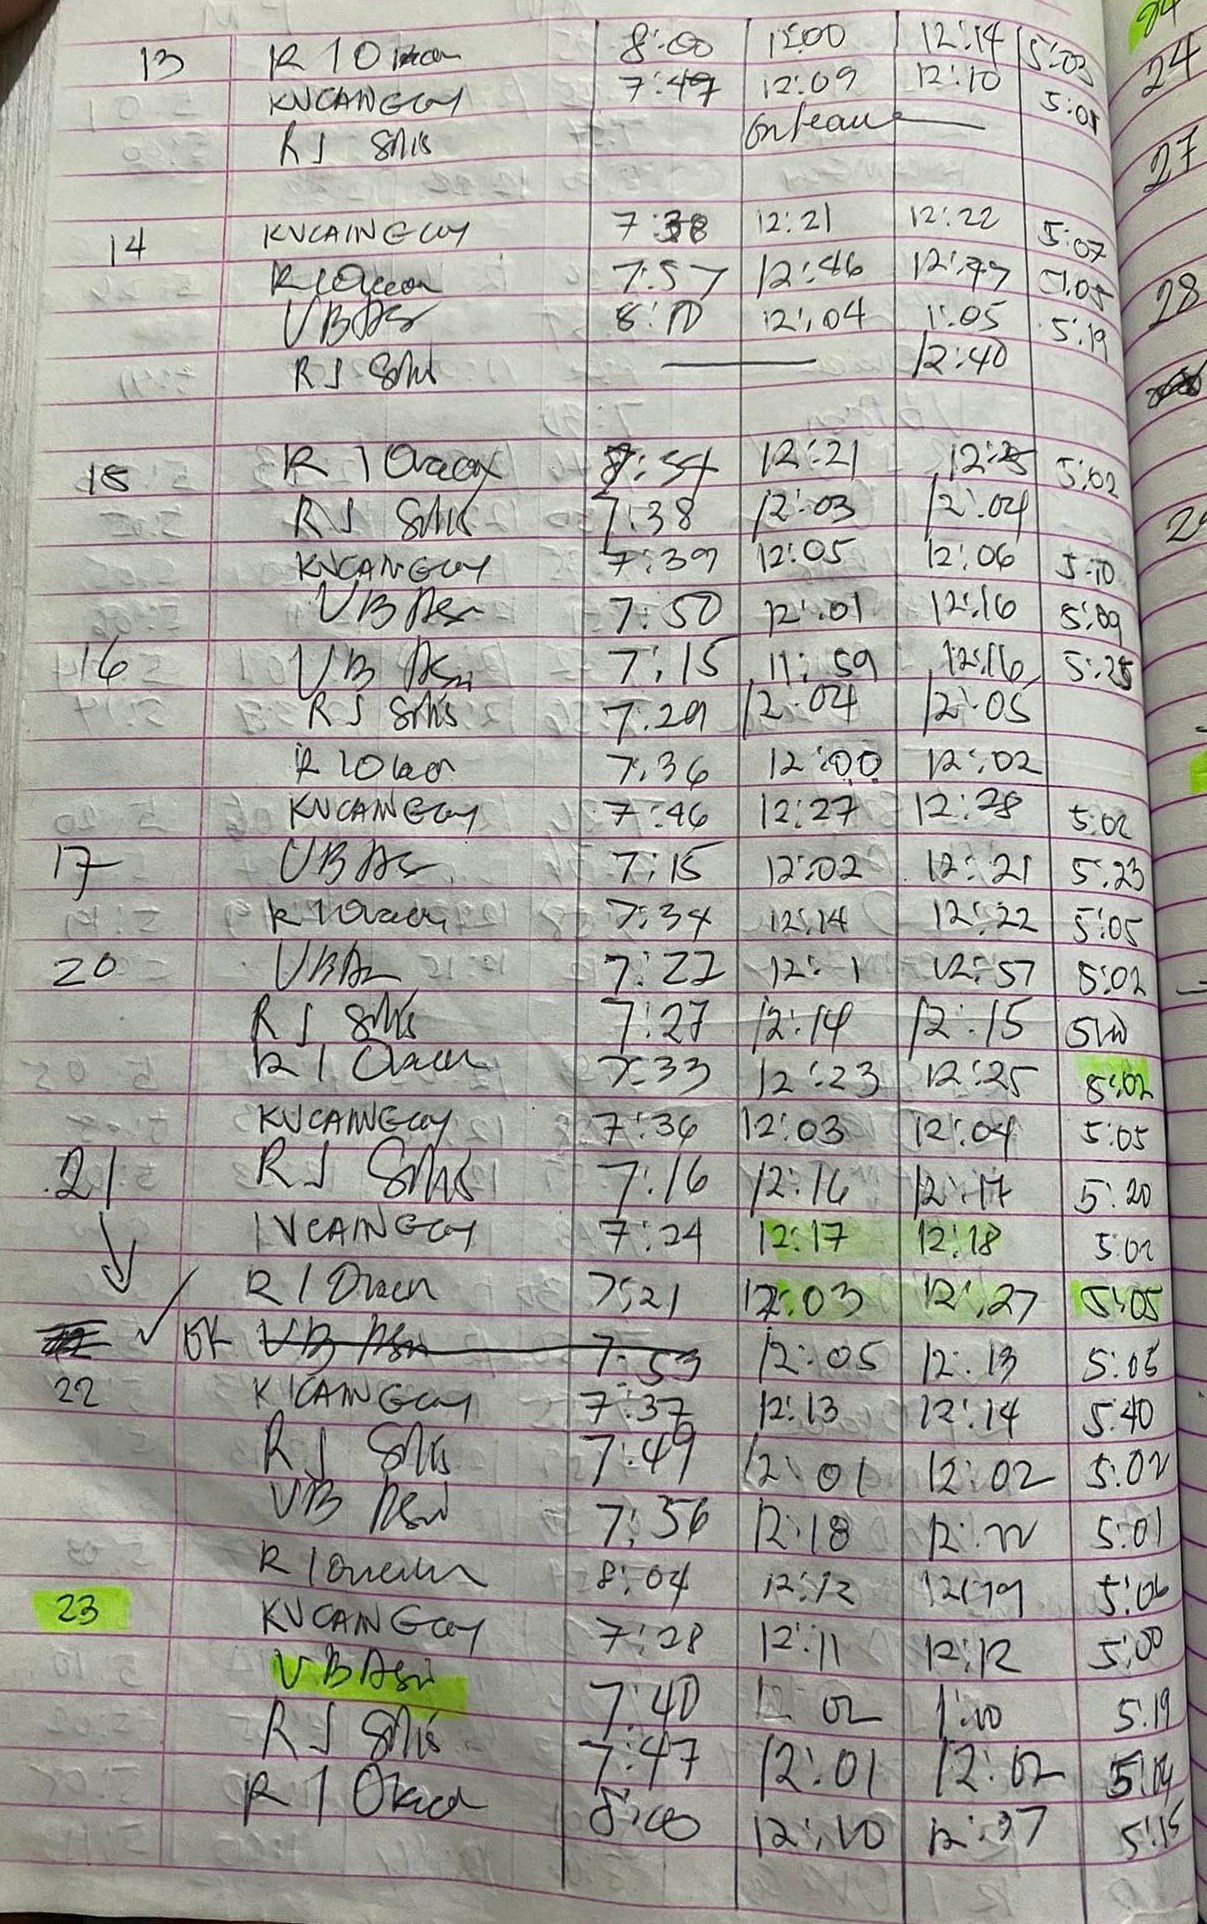 13 R I O 8:00 12:00 12:14 5:03
KVCAINGCOY 7:49 12:09 12:10 5:01
R J Solis On leave
14 KVCAINGCOY 7:38 12:21 12:22 5:07
R I O 7:57 12:46 12:47 5:05
VB 8:10 12:04 1:05 5:19
R J Solis 12:40
15 R I O 7:54 12:21 12:25 5:02
R J Solis 7:38 12:03 12:04
KVCAINGCOY 7:39 12:05 12:06 5:10
VB 7:50 12:01 12:16 5:09
16 VB 7:15 11:59 12:16 5:25
R J Solis 7:29 12:04 12:05
R I O 7:36 12:00 12:02
KVCAINGCOY 7:46 12:27 12:28 5:02
17 VB 7:15 12:02 12:21 5:23
R I O 7:34 12:14 12:22 5:05
20 VB 7:22 12:57 5:02
R J Solis 7:27 12:14 12:15
R I O 7:33 12:23 12:25 5:02
KVCAINGCOY 7:36 12:03 12:04 5:05
21 R J Solis 7:16 12:16 12:17 5:20
KVCAINGCOY 7:24 12:17 12:18 5:02
R I O 7:21 12:03 12:27 5:05
OK VB 7:53 12:05 12:13 5:05
22 KVCAINGCOY 7:37 12:13 12:14 5:40
R J Solis 7:49 12:01 12:02 5:02
VB 7:56 12:18 12:22 5:01
R I O 8:04 12:12 12:19 5:06
23 KVCAINGCOY 7:28 12:11 12:12 5:00
VB 7:40 02 1:10 5:19
R J Solis 7:47 12:01 12:02 5:04
R I O 8:00 12:10 12:37 5:15
24
24
27
28